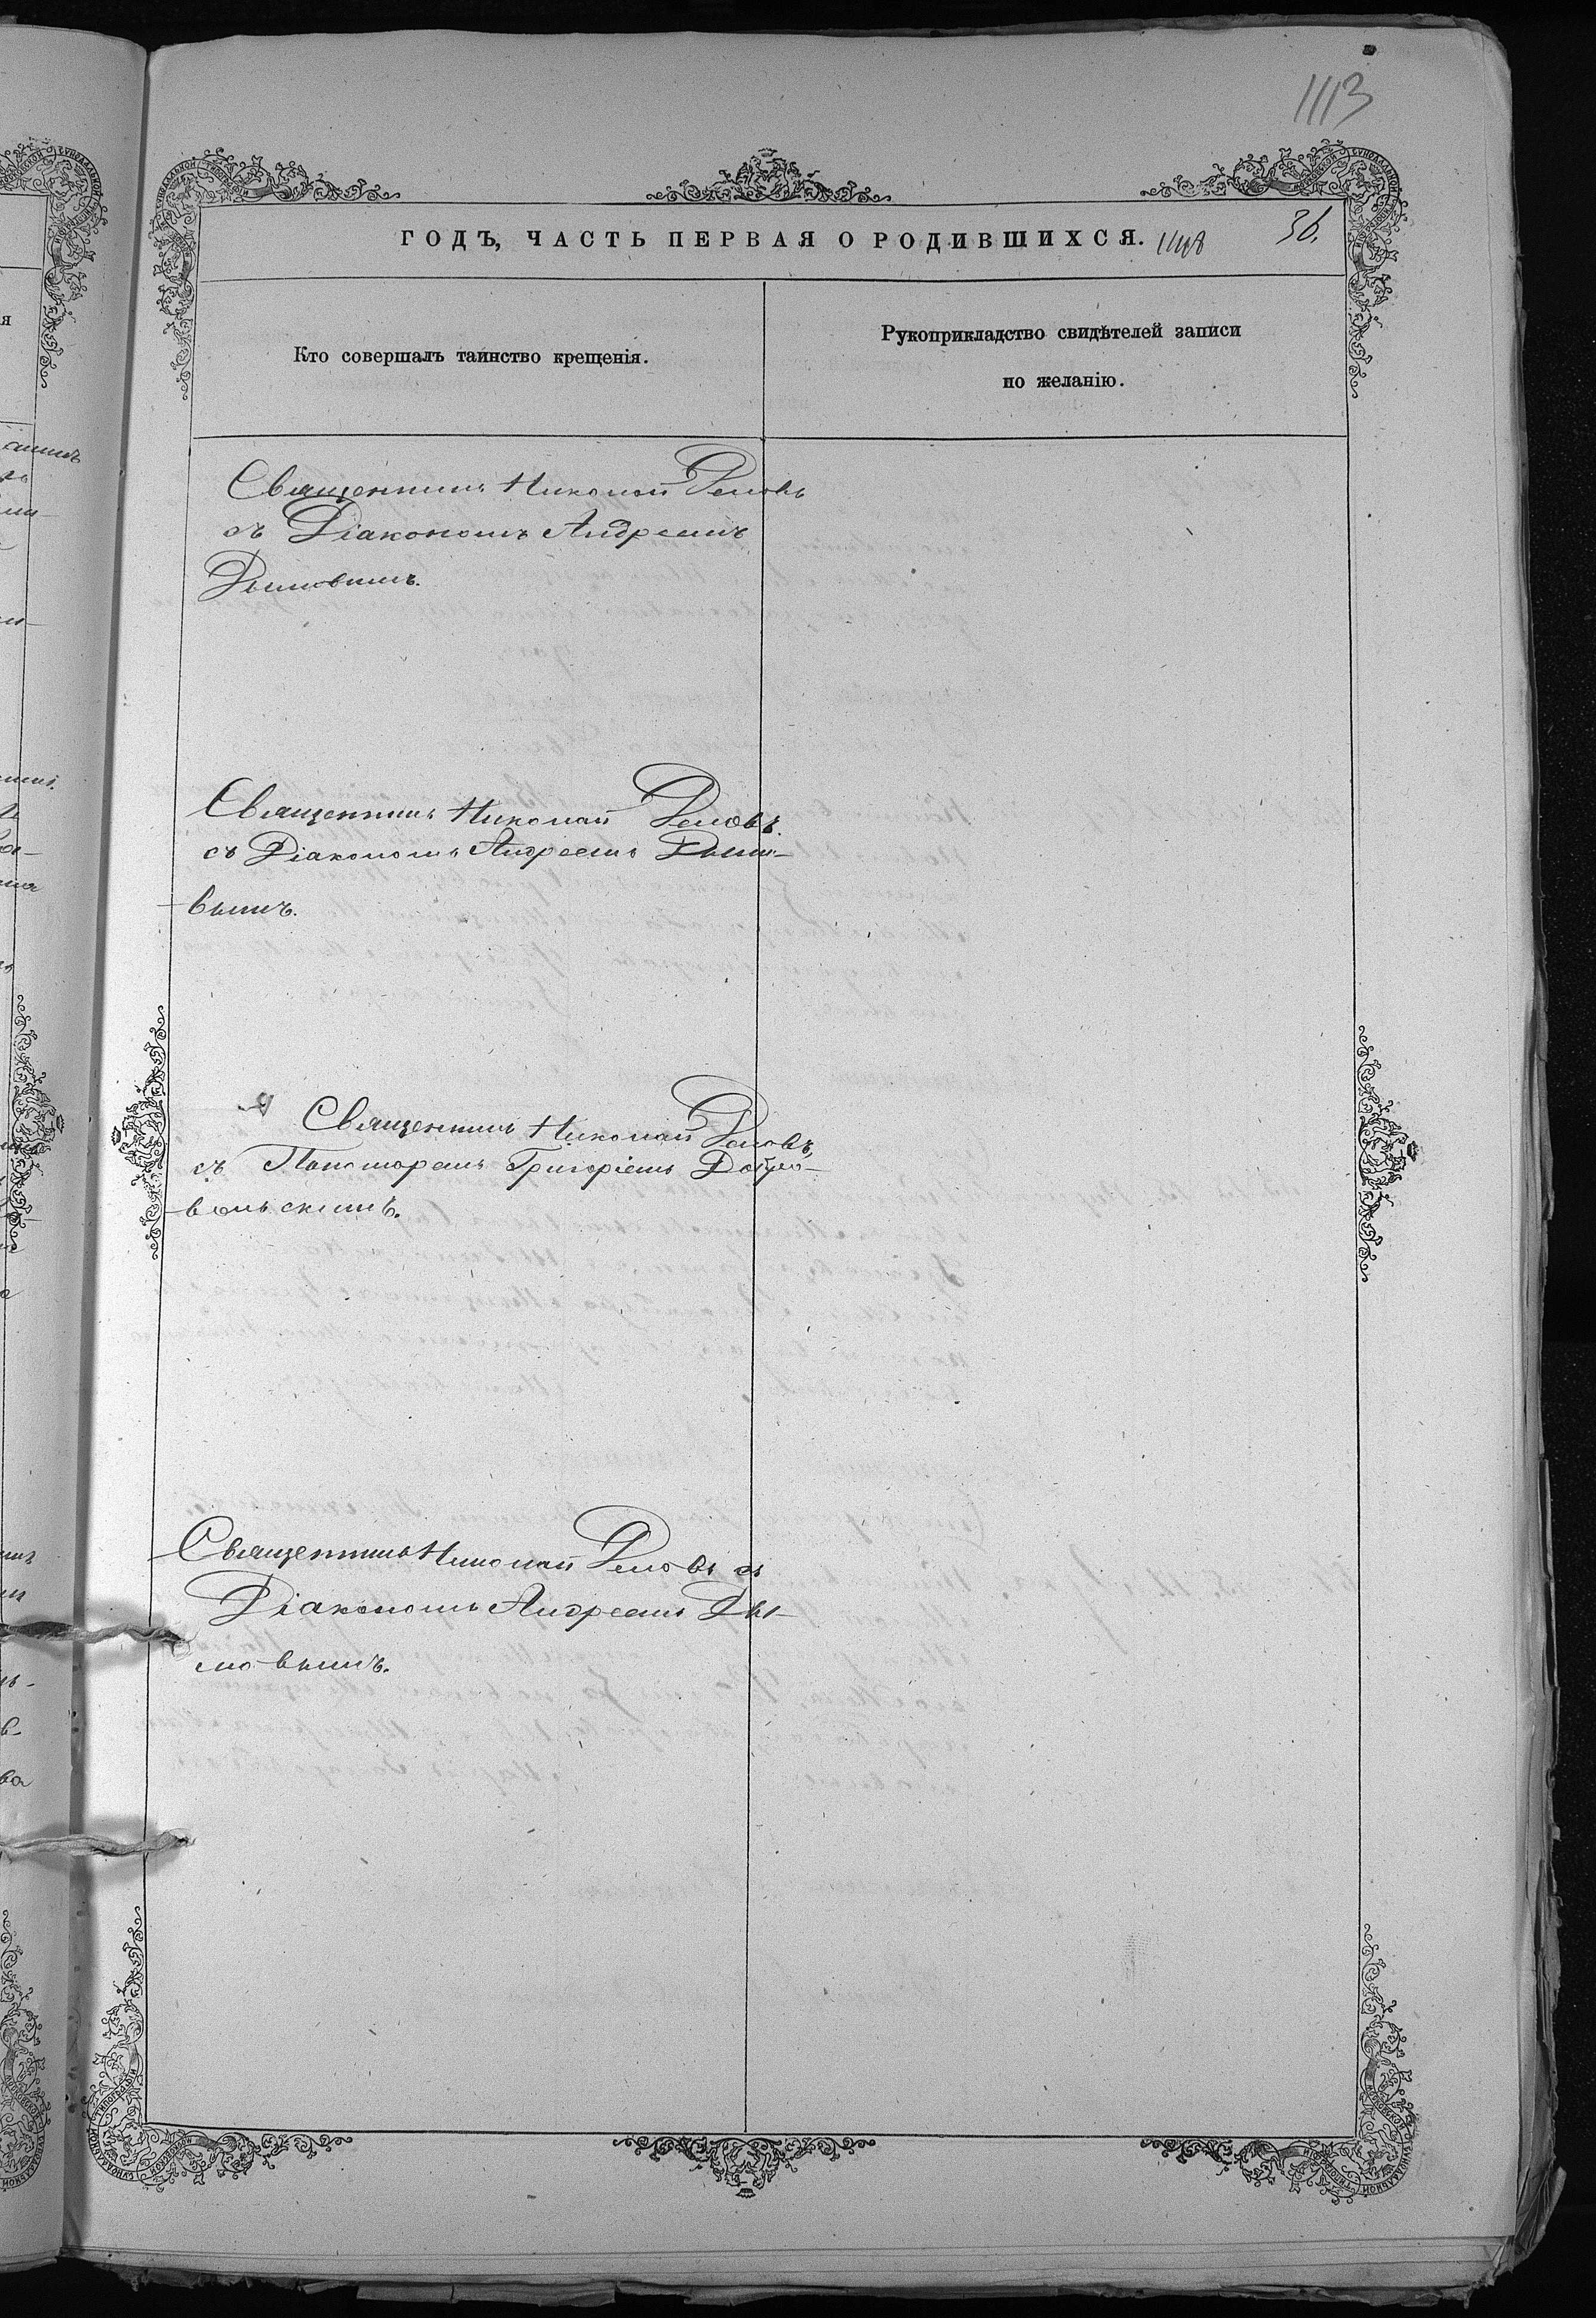 1113
ГОДЪ, ЧАСТЬ ПЕРВАЯ О РОДИВШИХСЯ. 1148
36.
Кто совершалъ таинство крещенія.
Рукоприкладство свидѣтелей записи
по желанію.
Священникъ Николай
съ Діакономъ Андреемъ
Дымовымъ.
Священникъ Николай
съ Діакономъ Андреемъ Дымо-
вымъ.
Священникъ Николай
съ Пономаремъ Григоріемъ Добро-
вольскимъ.
Священникъ Николай съ
Діакономъ Андреемъ Ды-
мовымъ.